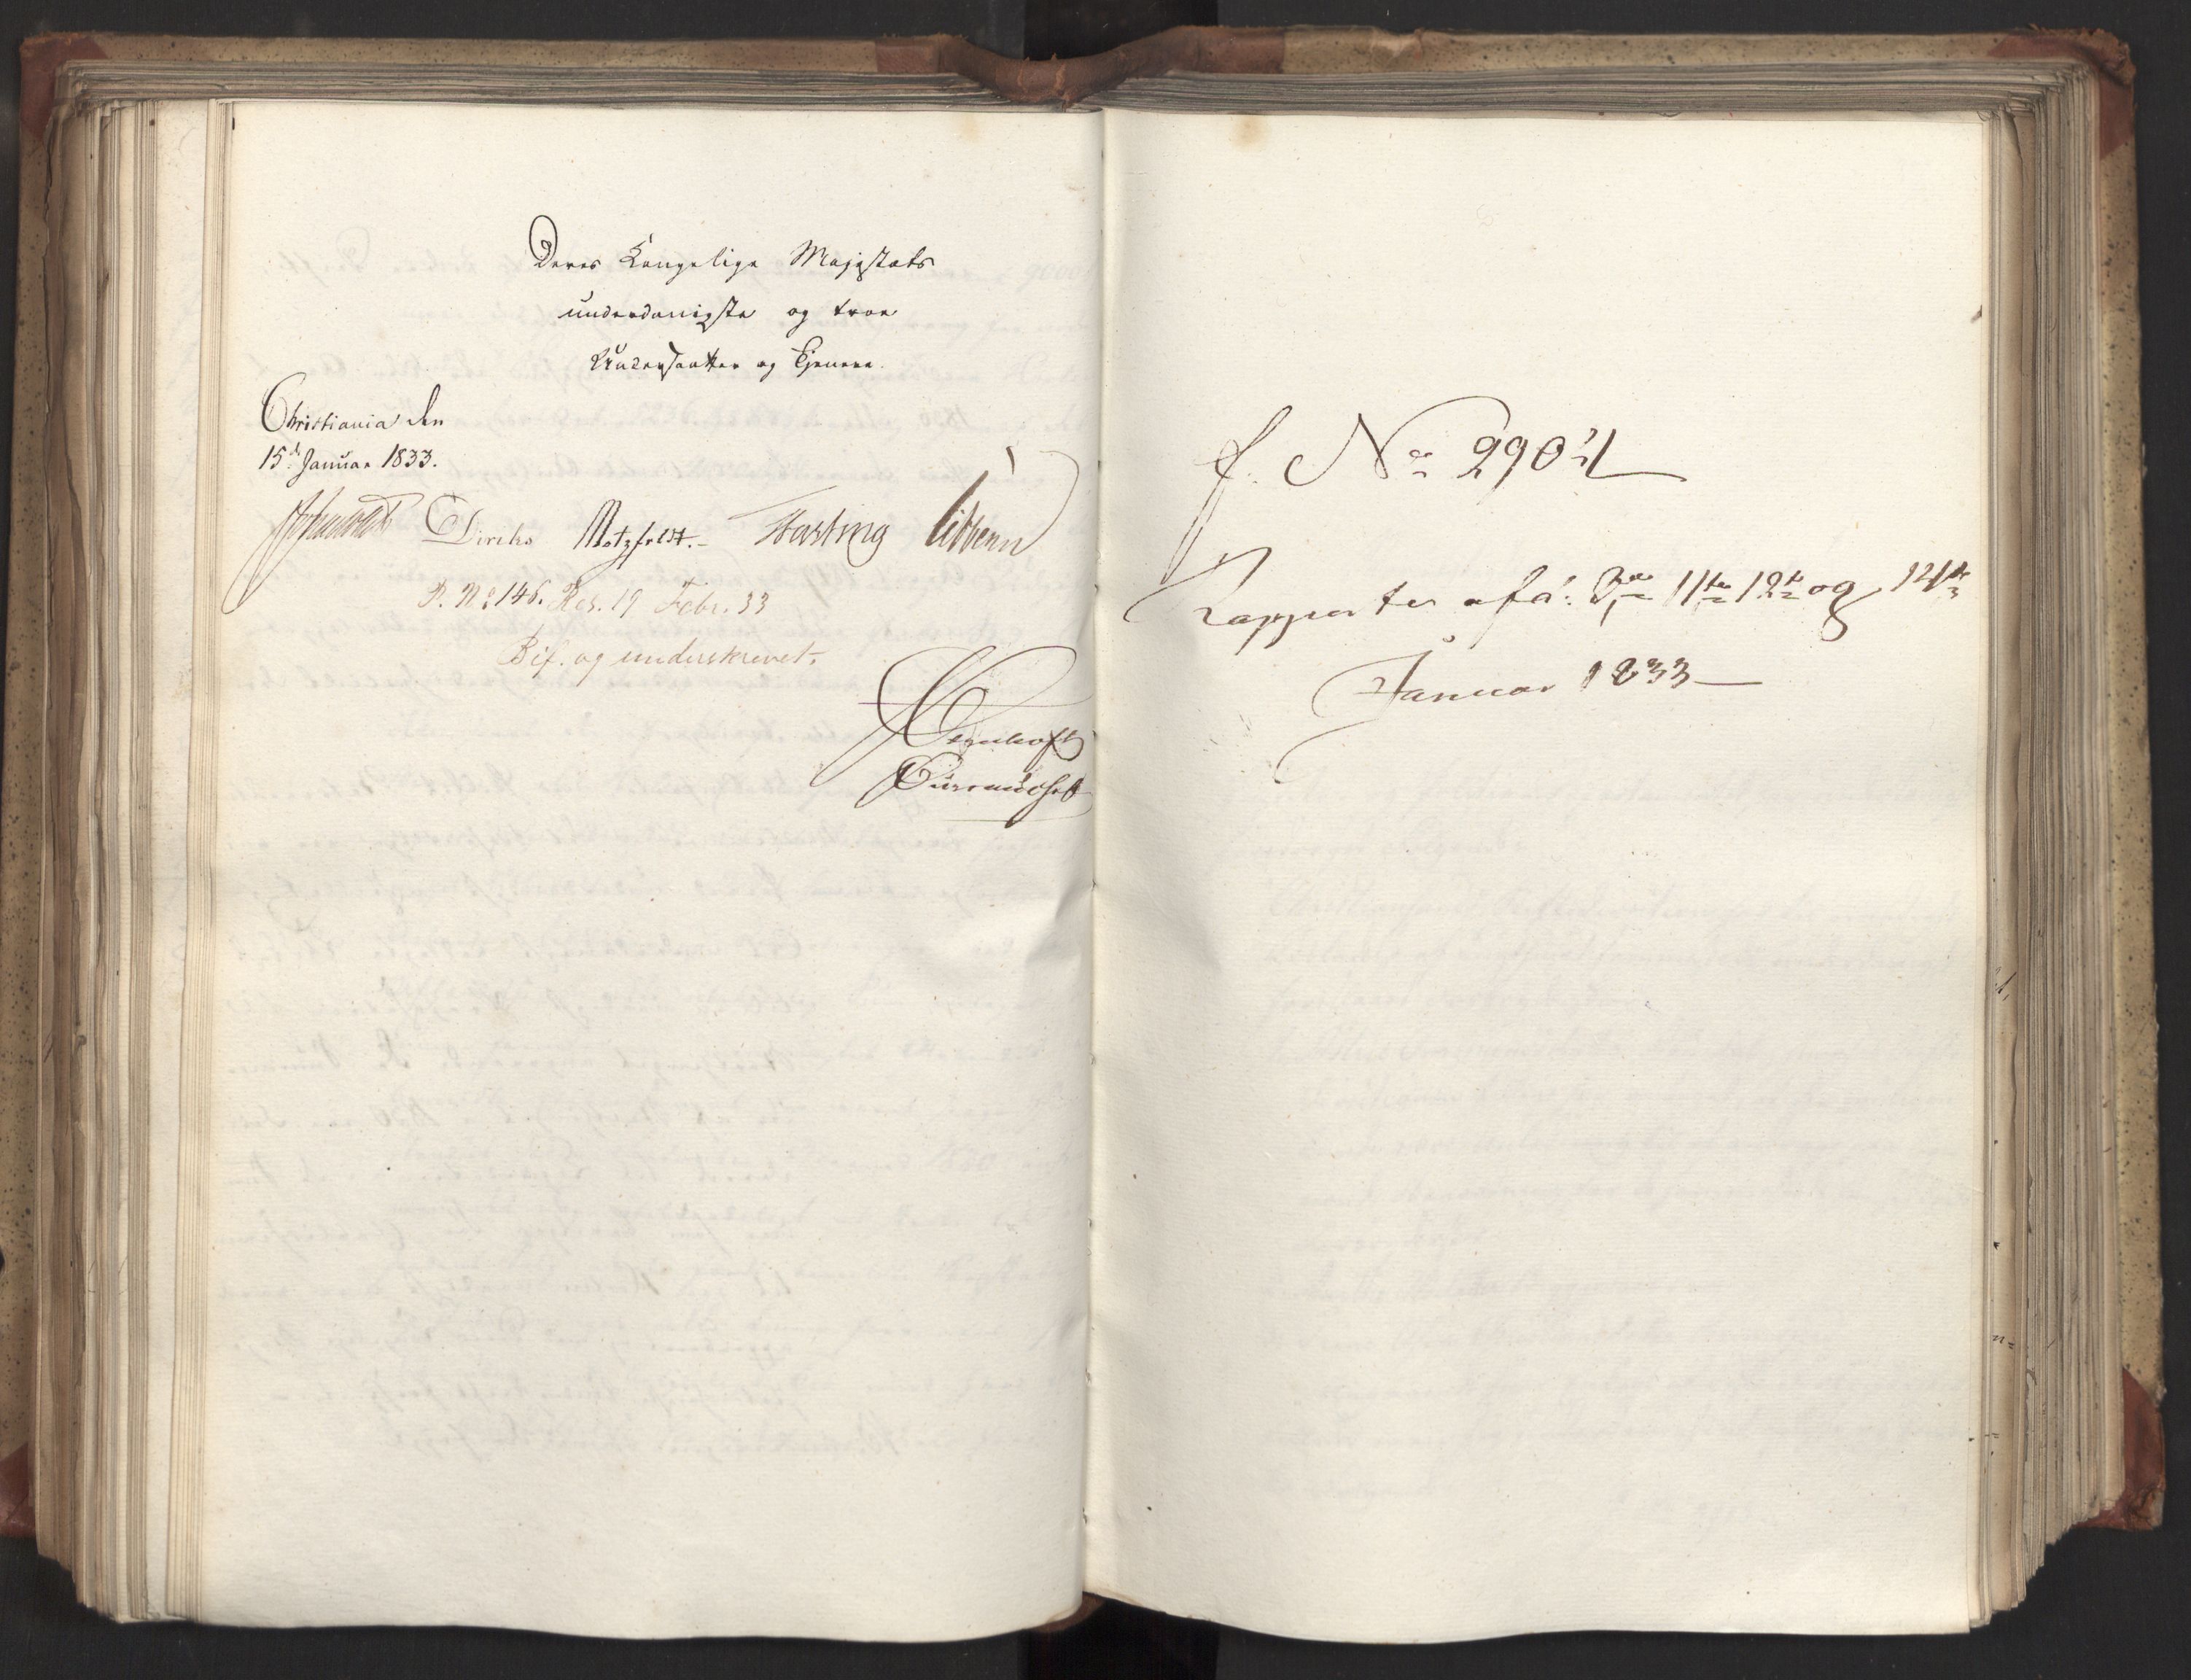 Deres Kongelige Majestæts
underdanigste og troe
Undersaatter og Tjenere.
Christiania den
15d Januar 1833.
Diriks Motzfeldt. Fasting Vibe
P. No 146. Res. 19 Febr. 33
Bif. og underskrevet.
f. No 2904
Rapporter af d: 11te 12te og 14de
Januar 1833